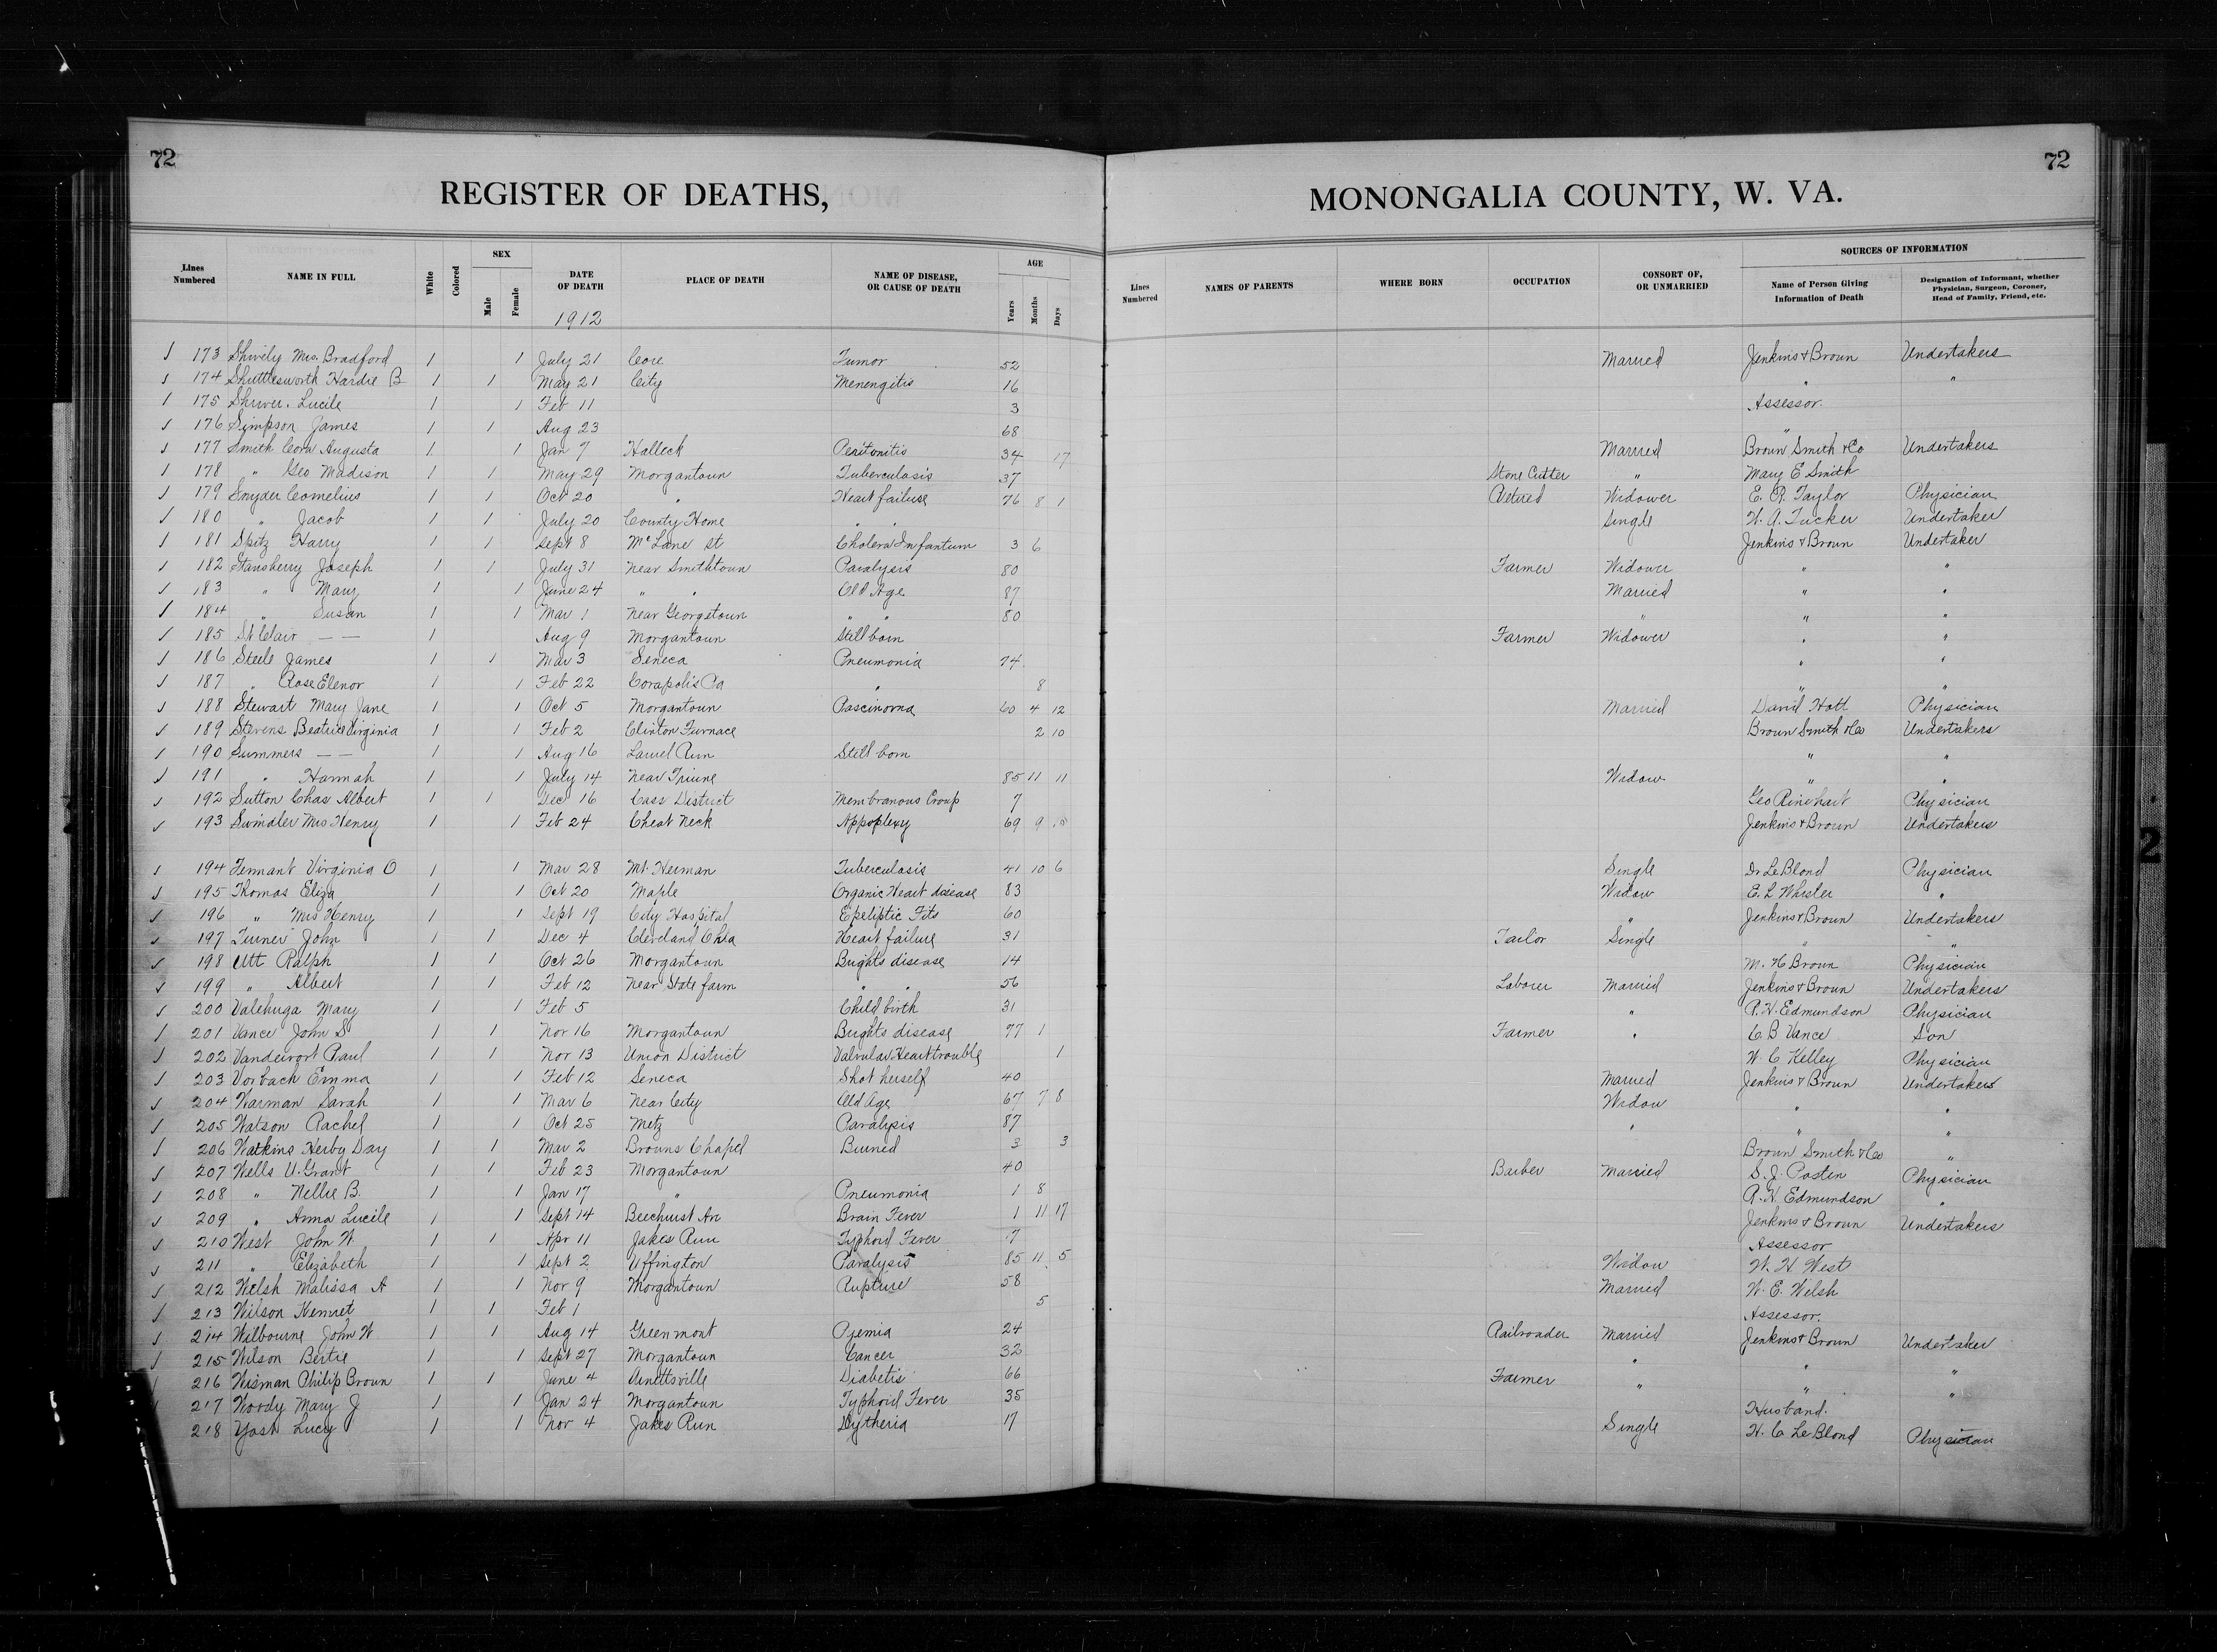 72
72
REGISTER OF DEATHS,
MONONGALIA COUNTY, W. VA.
Lines Numbered NAME IN FULL White Colored SEX Male Female DATE OF DEATH PLACE OF DEATH NAME OF DISEASE, OR CAUSE OF DEATH AGE Years Months Days Lines Numbered NAMES OF PARENTS WHERE BORN OCCUPATION CONSORT OF, OR UNMARRIED SOURCES OF INFORMATION Name of Person Giving Information of Death Designation of Informant, whether Physician, Surgeon, Coroner, Head of Family, Friend, etc.
1912
173 Shively Mrs. Bradford 1 1 July 21 Core Tumor 52 Married Jenkins & Brown Undertakers
174 Shuttlesworth Hardie B 1 1 May 21 City Menengitis 16 " "
175 Shriver. Lucile 1 1 Feb 11 3 Assessor.
176 Simpson James 1 1 Aug 23 68 "
177 Smith Cora Augusta 1 1 Jan 7 Halleck Peritonitis 34 17 Married Brown Smith & Co Undertakers
178 " Geo Madison 1 1 May 29 Morgantown Tuberculasis 37 Stone Cutter " Mary E Smith
179 Snyder Cornelius 1 1 Oct 20 " Heart failure 76 8 1 Retired Widower E. R. Taylor Physician
180 " Jacob 1 1 July 20 County Home " " Single W. A. Tucker Undertaker
181 Spitz Harry 1 1 Sept 8 McLane St Cholera Infantum 3 6 Jenkins & Brown Undertaker
182 Stansberry Joseph 1 1 July 31 Near Smithtown Paralysis 80 Farmer Widower " "
183 " Mary 1 1 June 24 " " Old Age 87 Married " "
184 " Susan 1 1 Mar 1 Near Georgetown " " 80 " " "
185 St Clair — — 1 Aug 9 Morgantown Still born Farmer Widower " "
186 Steele James 1 1 Mar 3 Seneca Pneumonia 74 " "
187 " Rose Elenor 1 1 Feb 22 Corapolis Pa " 8 " "
188 Stewart Mary Jane 1 1 Oct 5 Morgantown 60 4 12 Married David Hott Physician
189 Stevens Beatrice Virginia 1 1 Feb 2 Clinton Furnace 2 10 Brown Smith & Co Undertakers
190 Summers — — 1 1 Aug 16 Laurel Run Still born " "
191 " Hannah 1 1 July 14 Near Triune 85 11 11 Widow " "
192 Sutton Chas Albert 1 1 Dec 16 Cass District Membranous Croup 7 Geo Rinehart Physician
193 Swindler Mrs Henry 1 1 Feb 24 Cheat Neck Appoplexy 69 9 Jenkins & Brown Undertakers
194 Tennant Virginia O 1 1 Mar 28 Mt. Herman Tuberculasis 41 10 6 Single Dr LeBlond Physician
195 Thomas Eliza 1 1 Oct 20 Maple Organic Heart disease 83 Widow E. L Whisler "
196 " Mrs Henry 1 1 Sept 19 City Hospital Epeliptic Fits 60 " Jenkins & Brown Undertakers
197 Turner John 1 1 Dec 4 Cleveland Ohio Heart failure 31 Tailor Single " "
198 Utt Ralph 1 1 Oct 26 Morgantown Brights disease 14 M. H Brown Physician
199 " Albert 1 1 Feb 12 Near State farm " " 56 Laborer Married Jenkins & Brown Undertakers
200 Valehuga Mary 1 1 Feb 5 Child birth 31 " R. H. Edmundson Physician
201 Vance John S 1 1 Nov 16 Morgantown Brights disease 77 1 Farmer " C. B Vance Son
202 Vandervort Paul 1 1 Nov 13 Union District Valvular Heart trouble 1 W. C. Kelley Physician
203 Vorbach Emma 1 1 Feb 12 Seneca Shot herself 40 Married Jenkins & Brown Undertakers
204 Warman Sarah 1 1 Mar 6 Near City Old Age 67 7 8 Widow " "
205 Watson Rachel 1 1 Oct 25 Metz Paralysis 87 " " "
206 Watkins Herby Day 1 1 Mar 2 Browns Chapel Burned 3 3 Brown Smith & Co "
207 Wells U. Grant 1 1 Feb 23 Morgantown 40 Barber Married S. J. Posten Physician
208 " Nellie B. 1 1 Jan 17 " Pneumonia 1 8 R. H. Edmundson "
209 " Anna Lucile 1 1 Sept 14 Beechurst Av Brain Fever 1 11 17 Jenkins & Brown Undertakers
210 West John W. 1 1 Apr 11 Jakes Run Typhoid Fever 7 Assessor
211 " Elizabeth 1 1 Sept 2 Uffington Paralysis 85 11 5 Widow W. H. West
212 Welsh Malissa A 1 1 Nov 9 Morgantown Rupture 58 Married W. E. Welsh
213 Wilson 1 1 Feb 1 5 Assessor.
214 Wilbourne John W 1 1 Aug 14 Greenmont Pyemia 24 Railroader Married Jenkins & Brown Undertaker
215 Wilson Bertie 1 1 Sept 27 Morgantown Cancer 32 " " "
216 Wisman Philip Brown 1 1 June 4 Arnettsville Diabetis 66 Farmer " " "
217 Woody Mary J 1 1 Jan 24 Morgantown Typhoid Fever 35 Husband.
218 Yost Lucy 1 1 Nov 4 Jakes Run Dyptheria 17 Single H. C. LeBlond Physician
2